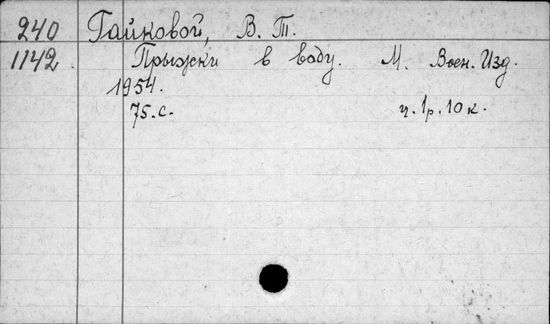 240 Гайковой, В. Т.
1142. Прыжки в воду. М. Воен. Изд.
1954.
75.с. ц. 1р. 10к.